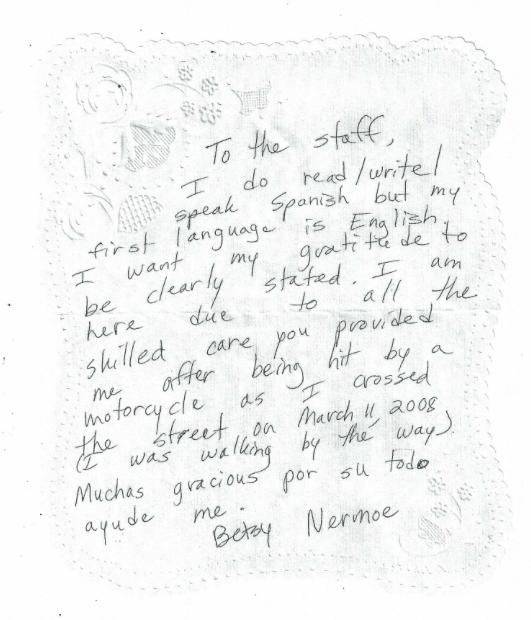 To the staff,
I do read/write/
speak Spanish but my
first language is English.
I want my gratitude to
be clearly stated. I am
here due to all the
skilled care you provided
me after being hit by a
motorcycle as I crossed
the street on March 11, 2008
(I was walking by the way)
Muchas gracious por su todo
ayude me.
Betsy Nermoe